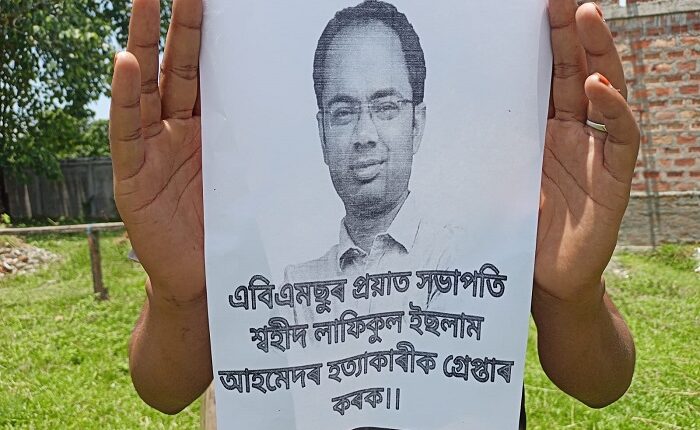 এবিএমছুৰ প্ৰয়াত সভাপতি
শ্বহীদ লাফিকুল ইছলাম
আহমেদৰ হত্যাকাৰীক গ্ৰেপ্তাৰ
কৰক।।